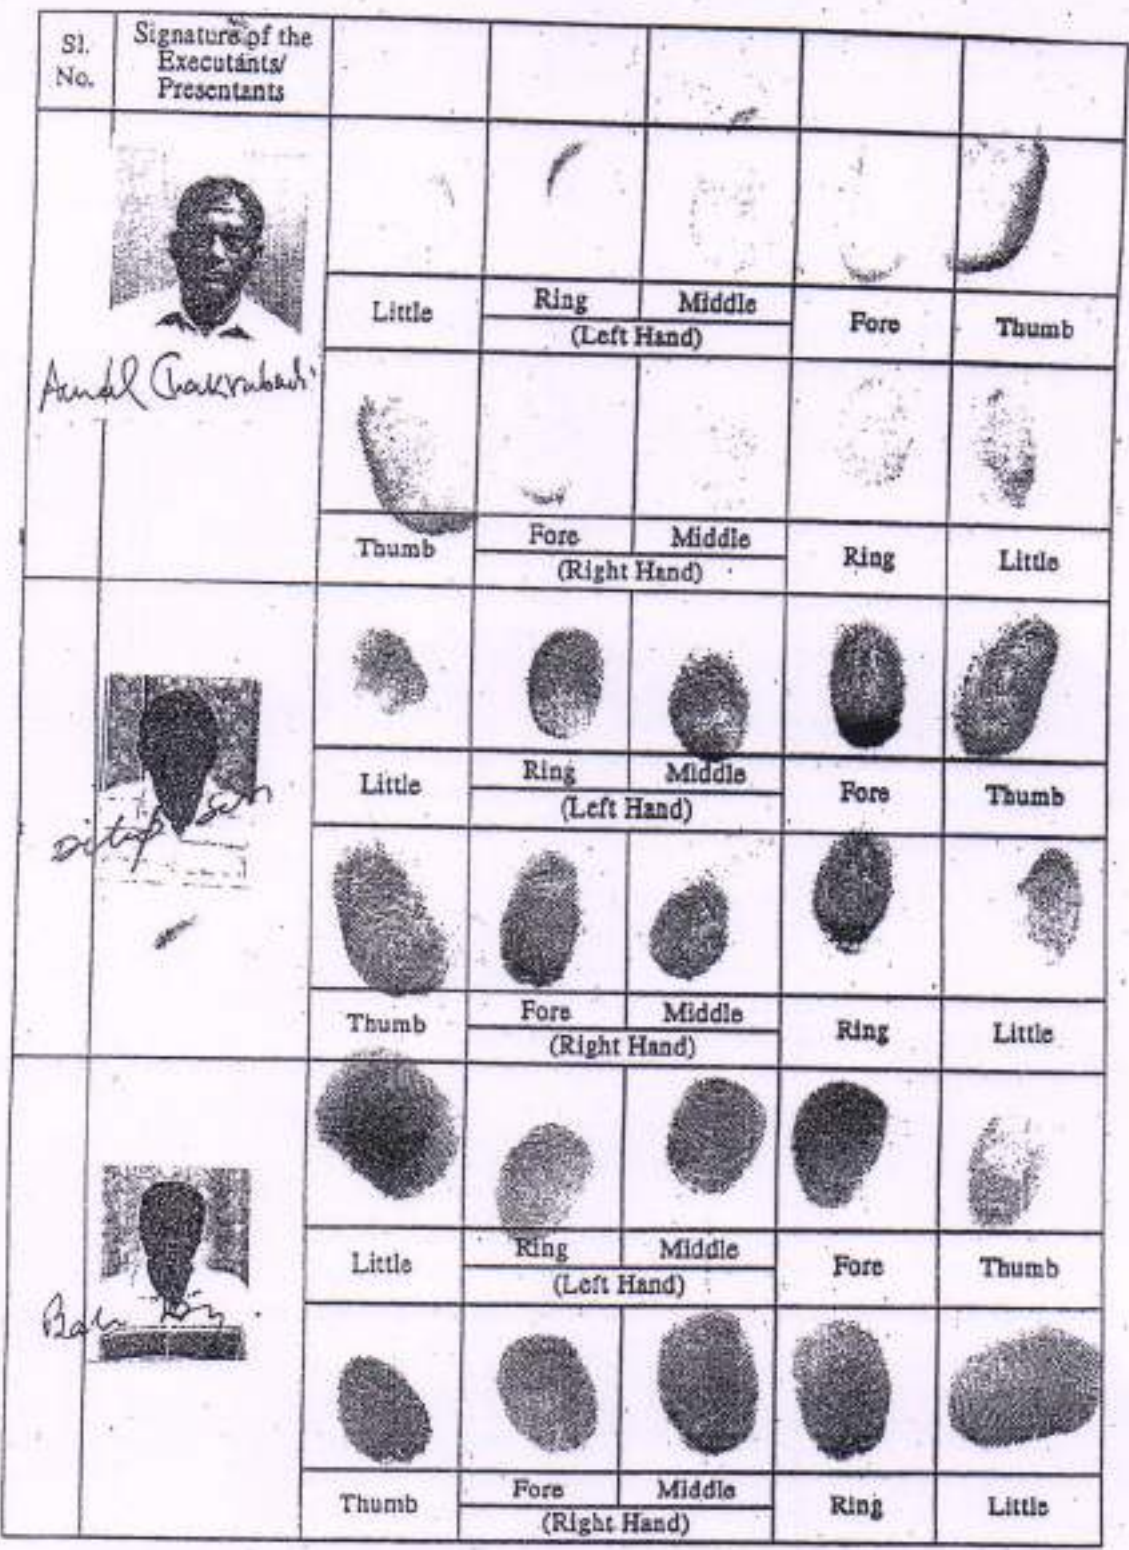 Sl. No.
Signature of the Executants/ Presentants
Little Ring Middle Fore Thumb
(Left Hand)
Chakrabarti
Thumb Fore Middle Ring Little
(Right Hand)
Little Ring Middle Fore Thumb
(Left Hand)
Sen
Thumb Fore Middle Ring Little
(Right Hand)
Little Ring Middle Fore Thumb
(Left Hand)
Thumb Fore Middle Ring Little
(Right Hand)